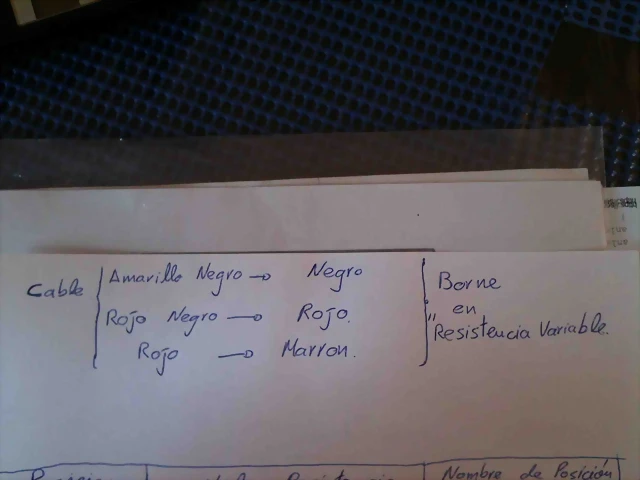 Cable
Amarillo Negro → Negro
Rojo Negro → Rojo.
Rojo → Marron.
Borne
" en
Resistencia Variable.
Nombre de Posición